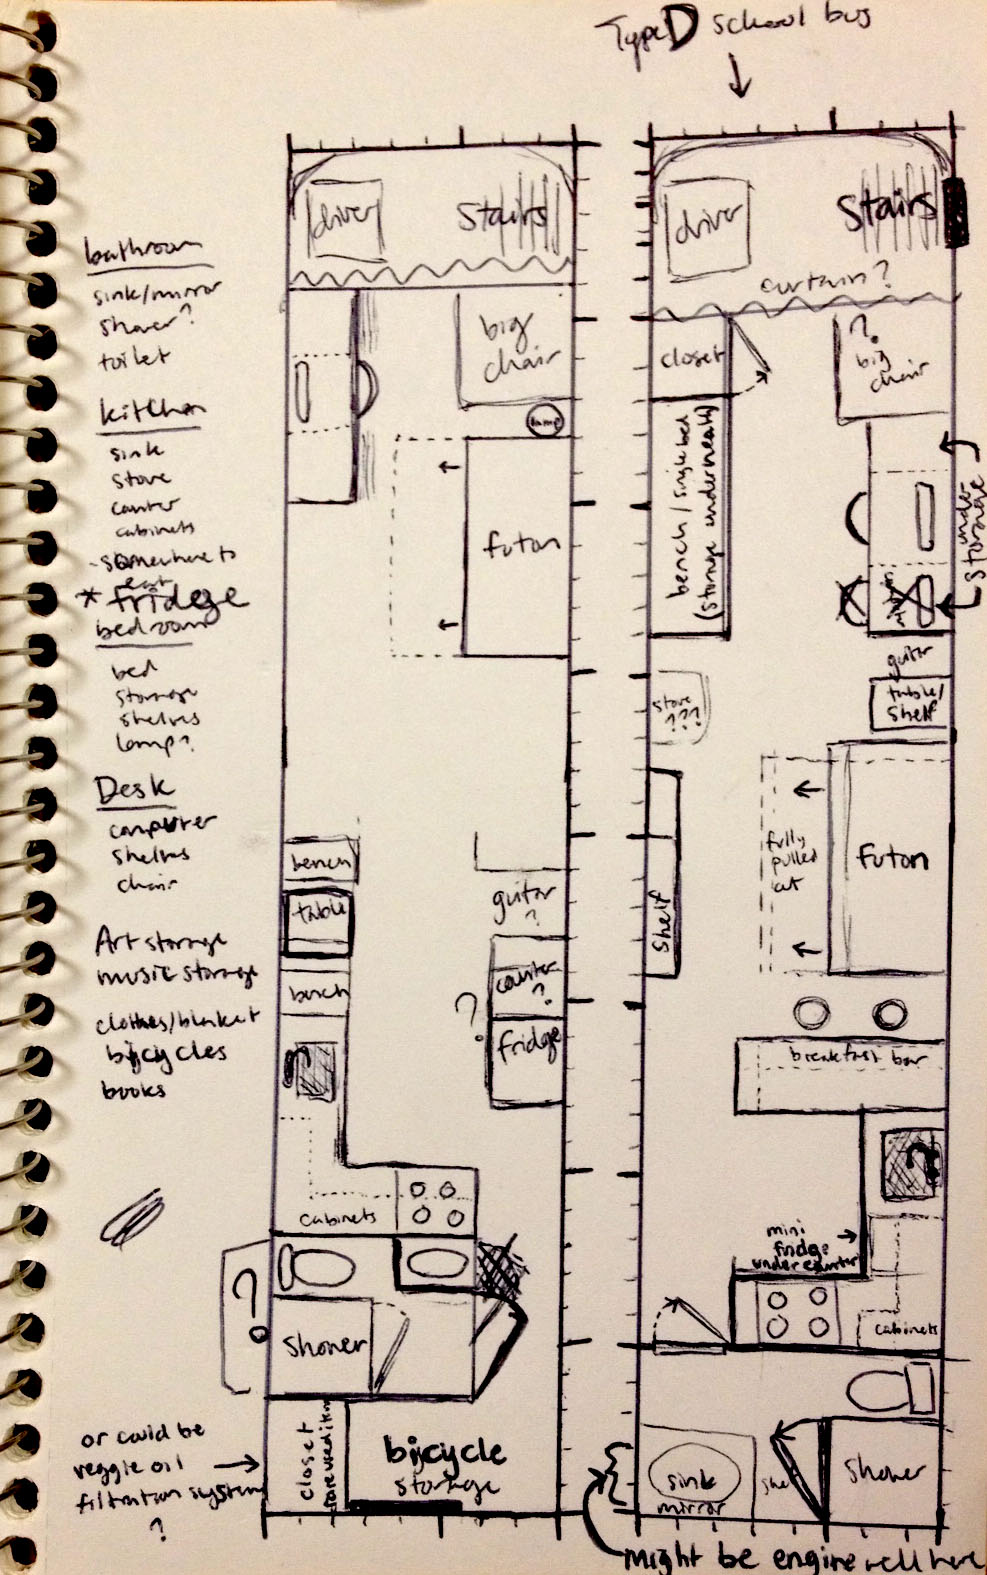 Type D school bus
bathroom
sink/mirror
shower?
toilet
kitchen
sink
stove
counter
cabinets
-somewhere to
eat
* fridge
bedroom
bed
storage
shelves
lamp?
Desk
computer
shelves
chair
Art storage
music storage
clothes/blanket
bicycles
books
or could be
veggie oil
filtration system
?
driver
stairs
big
chair
lamp
futon
bench
table
bench
guitar
?
counter
?
fridge
?
cabinets
?
shower
closet
bicycle
storage
driver
stairs
curtain?
closet
?
big
chair
bench / single bed
(storage underneath)
under
storage
guitar
table/
shelf
stove
???
shelf
fully
pulled
out
futon
breakfast bar
mini
fridge
under counter
cabinets
sink
mirror
shower
might be engine well here